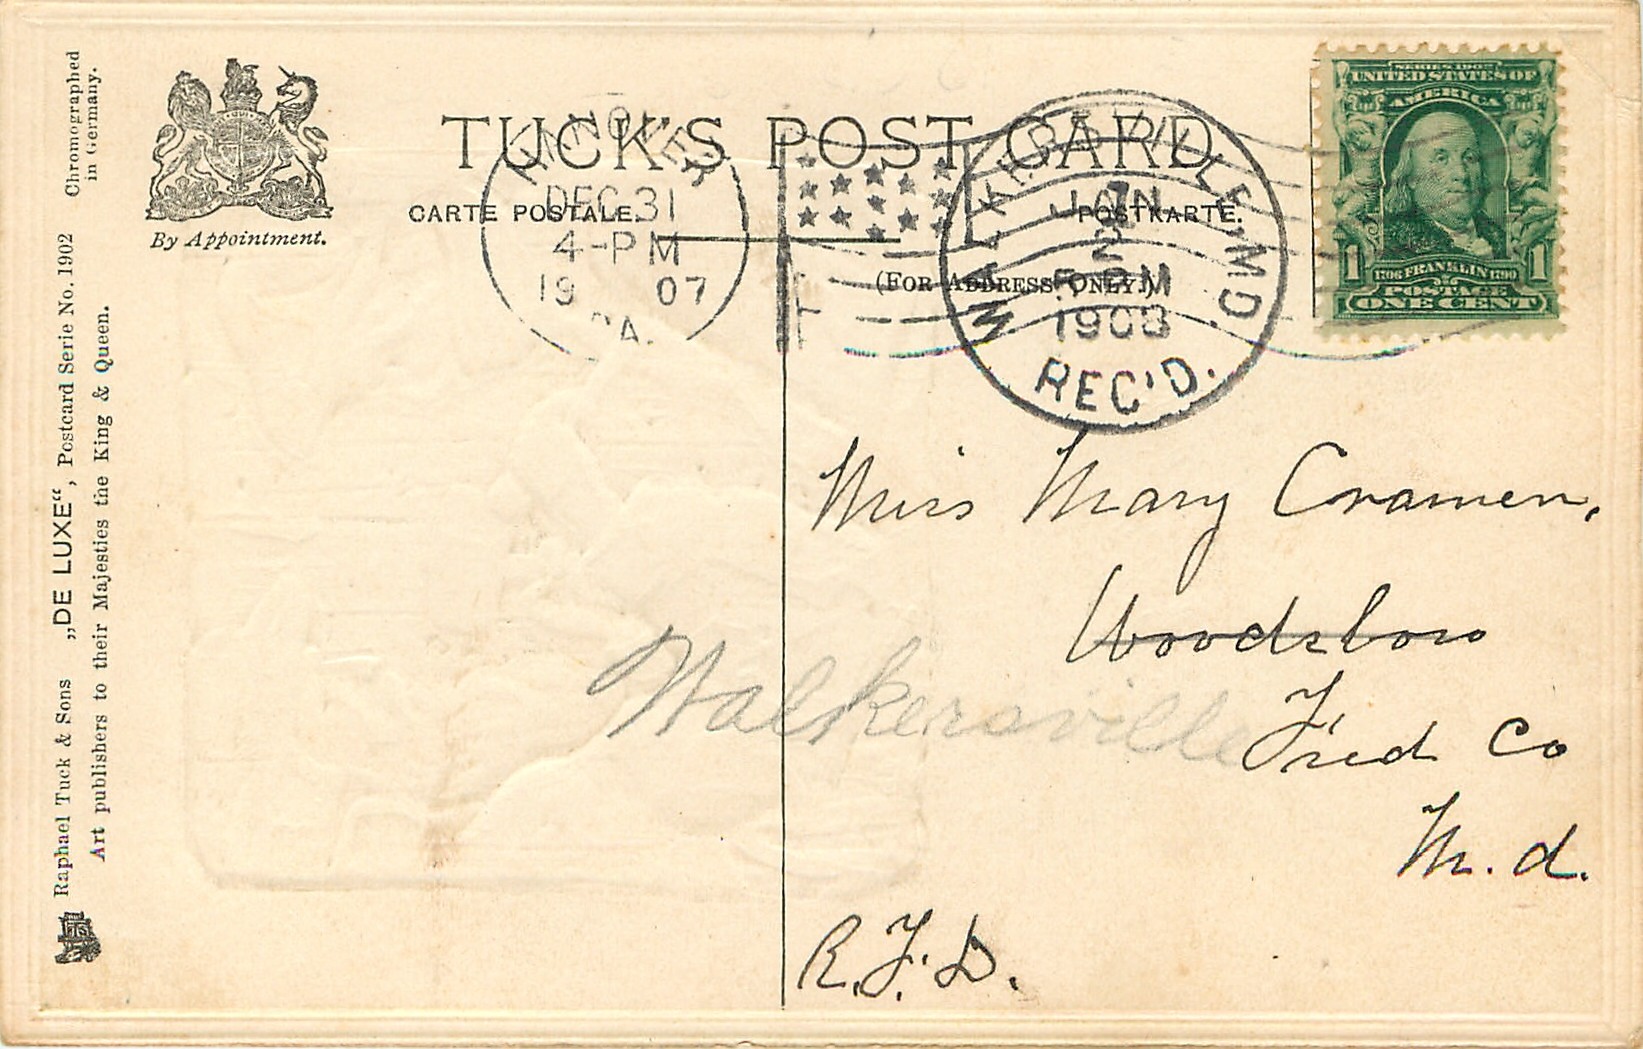 TUCK'S POST CARD
CARTE POSTALE.
POSTKARTE.
(FOR ADDRESS ONLY.)
By Appointment.
HANOVER
DEC 31
4-PM
1907
PA.
WALKERSVILLE, MD.
JAN
2
PM
1908
REC'D.
SERIES 1902
UNITED STATES OF
AMERICA
1706 FRANKLIN 1790
POSTAGE
1 ONE CENT 1
Miss Mary Cramer,
Woodsboro
Walkersville
Fred Co
M.d.
R.F.D.
Raphael Tuck & Sons „DE LUXE“, Postcard Serie No. 1902 Chromographed
in Germany.
Art publishers to their Majesties the King & Queen.